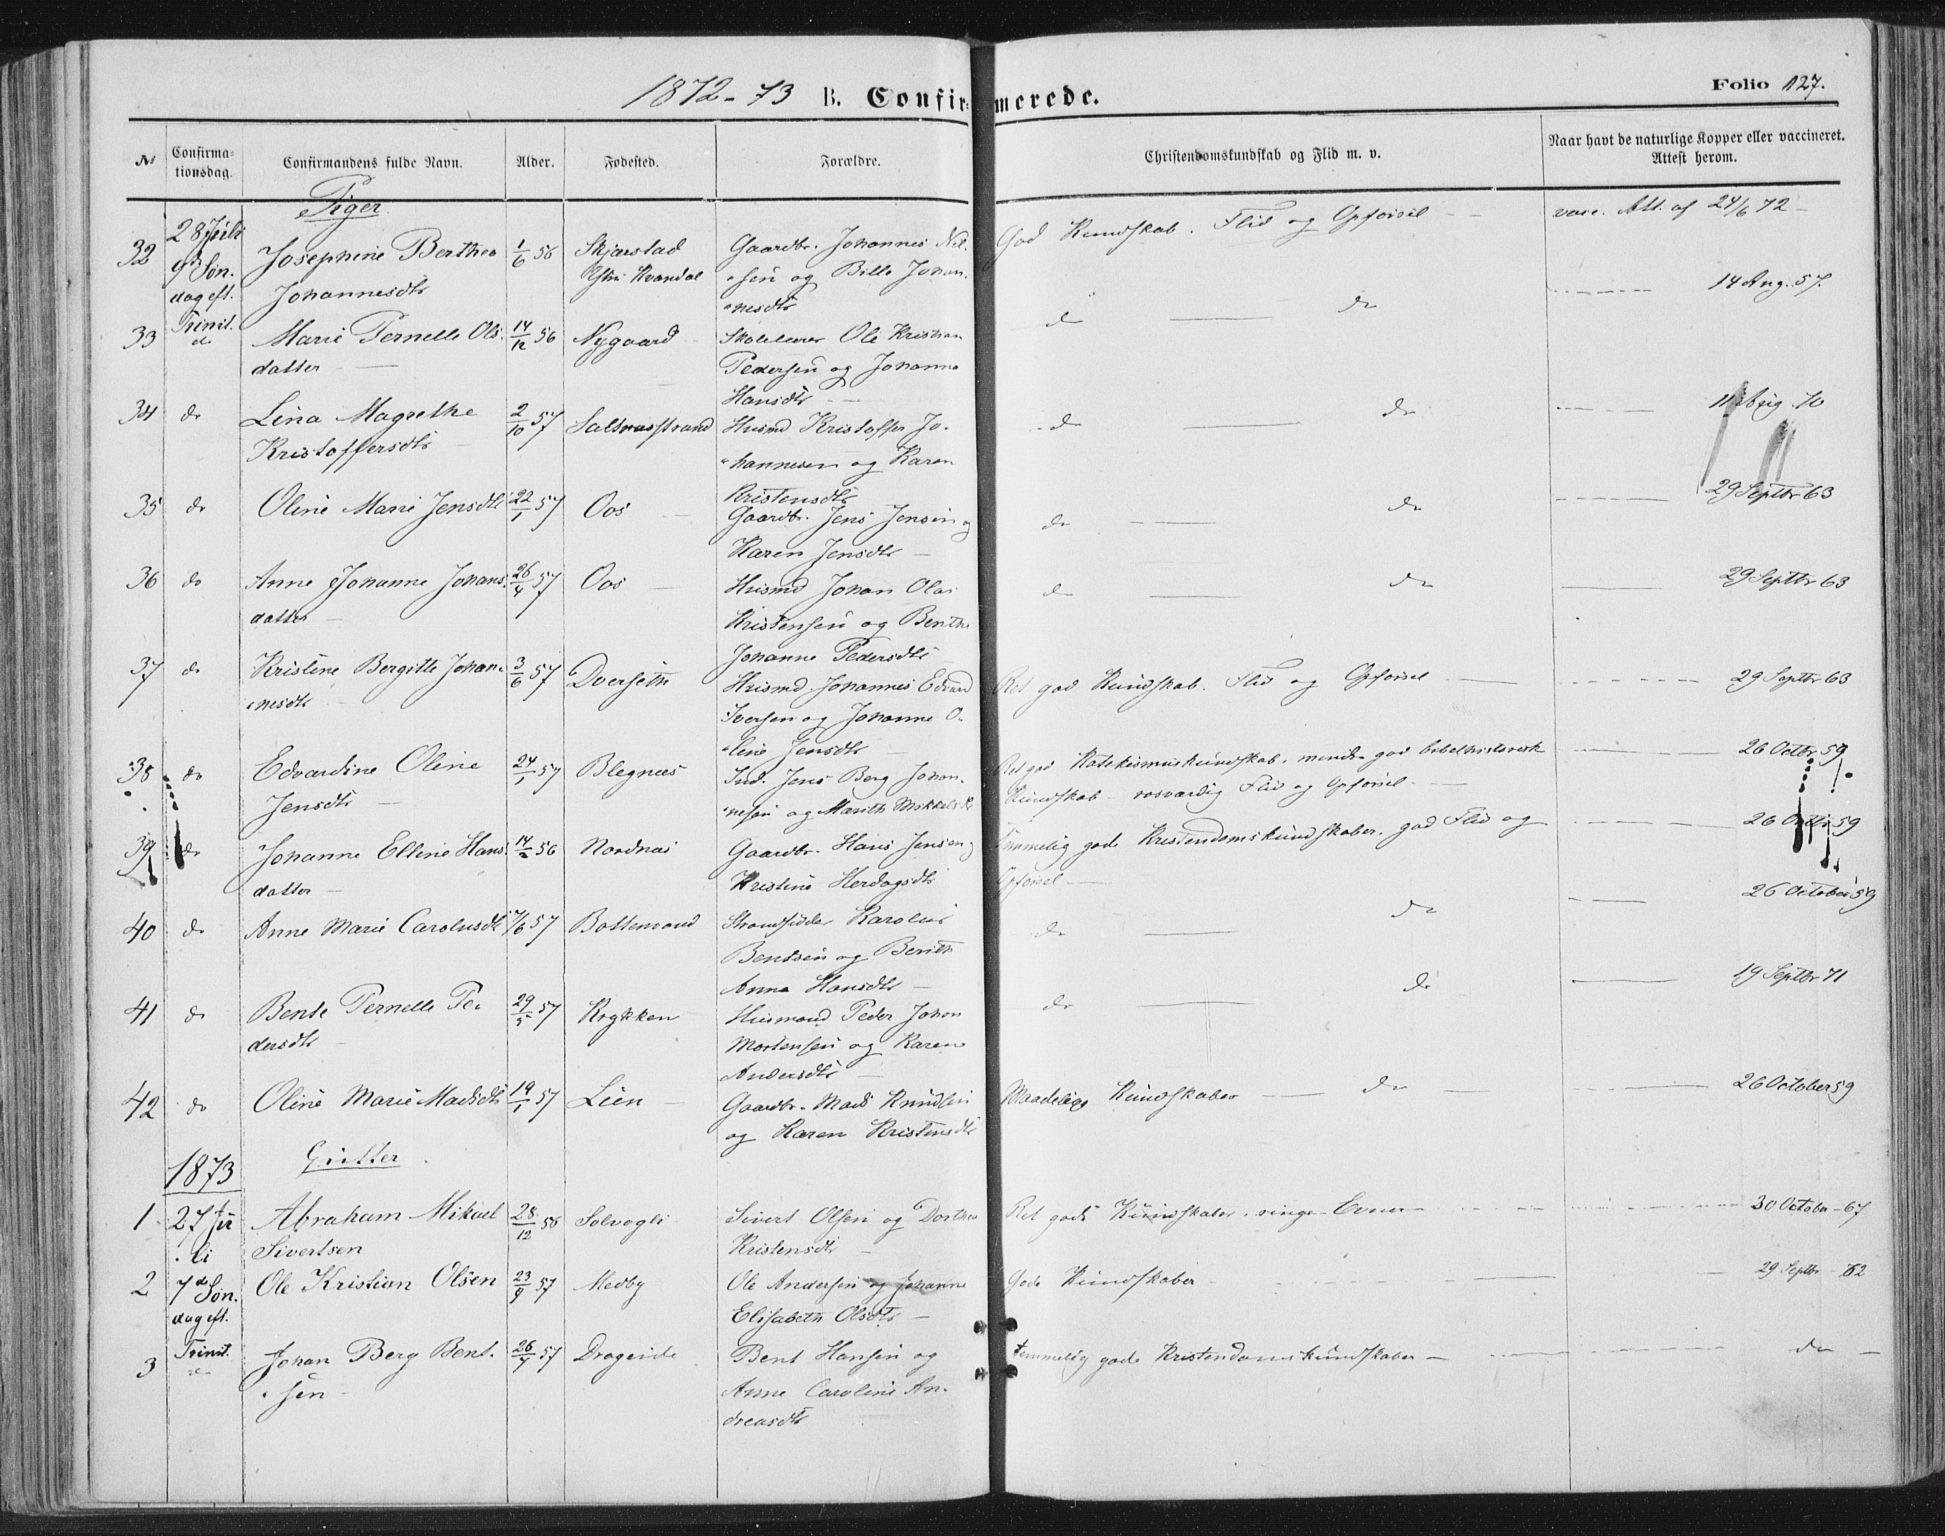 1872-73 B. Confirmerede. Folio 127.
No Confirmationsdag. Confirmandens fulde Navn. Alder. Fødested. Forældre. Christendomskundskab og Flid m. v. Naar havt de naturlige Kopper eller vaccineret. Attest herom.
Piger
32 28 Juli Josephine Berthea 1/6 56 Skjærstad Gaardbr. Johannes Nil- God Kundskab. Flid og Opførsel vacc. Att. af 24/6 72
9de Søn- Johannesdtr Kvandal -sen og Johan-
dag eft. -nesdtr
Trinit.
33 do Marie Pernelle Ols- 14/12 56 Nygaard Skolelærer Ole Kristian do do 14 Aug. 57.
datter Pedersen og Johanna
Hansdtr
34 do Lina Magrethe 2/10 57 Husmd Kristoffer Jo- do do 70
Kristoffersdtr -hannesen og Karen
Kristensdtr
35 do Oline Marie Jensdtr 22/1 57 Oos Gaardbr. Jens Jensen og do do 29 Septbr 63
Karen Jensdtr
36 do Anne Johanne Johans- 26/4 57 Oos Husmd Johan Olai do do 29 Septbr 63
datter Kristensen og Berithe
Johanne Pedersdtr
37 do Kristine Bergitte Johan- 3/6 57 Dverseth Husmd Johannes Edvard Ret god Kundskab. Flid og Opførsel 29 Septbr 63
-nesdtr Iversen og Johanne O-
-line Jensdtr
38 do Edvardine Oline 24/1 57 Blegnæs Ind. Jens Berg Johan- Ret god Katekismuskundskab, mindre god bibelhistorisk 26 Octbr 59
Jensdtr -nesen og Marith Mikkelsdtr Kundskab - rosværdig Flid og Opførsel
39 do Johanne Elline Hans- 56 Nordnæs Gaardbr. Hans Jensen og Temmelig gode Kristendomskundskaber. god Flid og 26 Octbr 59
datter Kristine Herdagsdtr Opførsel
40 do Anne Marie Carolusdtr 7/6 57 Bottenvand Strandsidder Karolus do do 26 October 59
Bentsen og Berith
Anna Hansdtr
41 do Bente Pernelle Pe- 29/5 57 Krykken Husmand Peder Johan do do 19 Septbr 71
dersdtr Mortensen og Karen
Andersdtr
42 do Oline Marie Madsdtr 19/1 57 Lien Gaardbr. Mads Knudsen Maadelige Kundskaber do 26 October 59
og Karen Kristensdtr
1873 Gutter
1 27 Ju- Abraham Mikael 28/12 56 Solvogli Sivert Olsen og Dorthea Ret gode Kundskaber. ringe Evner 30 October 67
li Sivertsen Kristensdtr
2 7de Søn- Ole Kristian Olsen 23/9 57 Medby Ole Andersen og Johanne Gode Kundskaber 29 Septbr 62
dag eft. Elisabeth Olsdtr
Trinit.
3 do Johan Berg Bent- 26/7 57 Drageide Bent Hansen og temmelig gode Kristendomskundskaber do
-sen Anne Caroline An-
dreasdtr